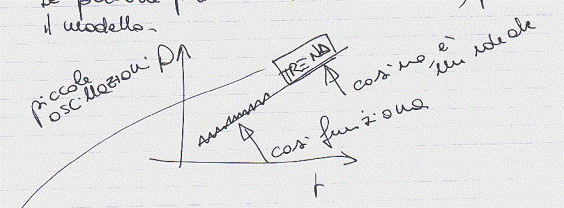 il modello.
piccole
oscillazioni
TRENO
così no è
un ideale
così funziona
t